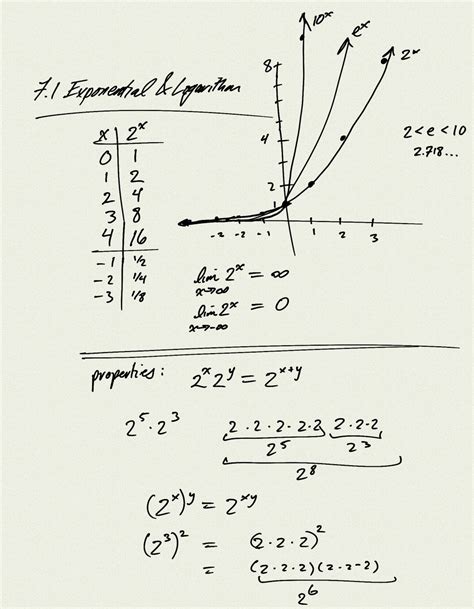 7.1 Exponential & Logarithm
10ˣ
eˣ
2ˣ
8
4
2
-2 -2 -1 1 2 3
2 < e < 10
2.718...
x 2ˣ
0 1
1 2
2 4
3 8
4 16
-1 1/2
-2 1/4
-3 1/8
lim 2ˣ = ∞
x→∞
lim 2ˣ = 0
x→-∞
properties: 2ˣ 2ʸ = 2ˣ⁺ʸ
2⁵·2³ 2·2·2·2·2 2·2·2
2⁵ 2³
2⁸
(2ˣ)ʸ = 2ˣʸ
(2³)² = (2·2·2)²
= (2·2·2)(2·2-2)
2⁶